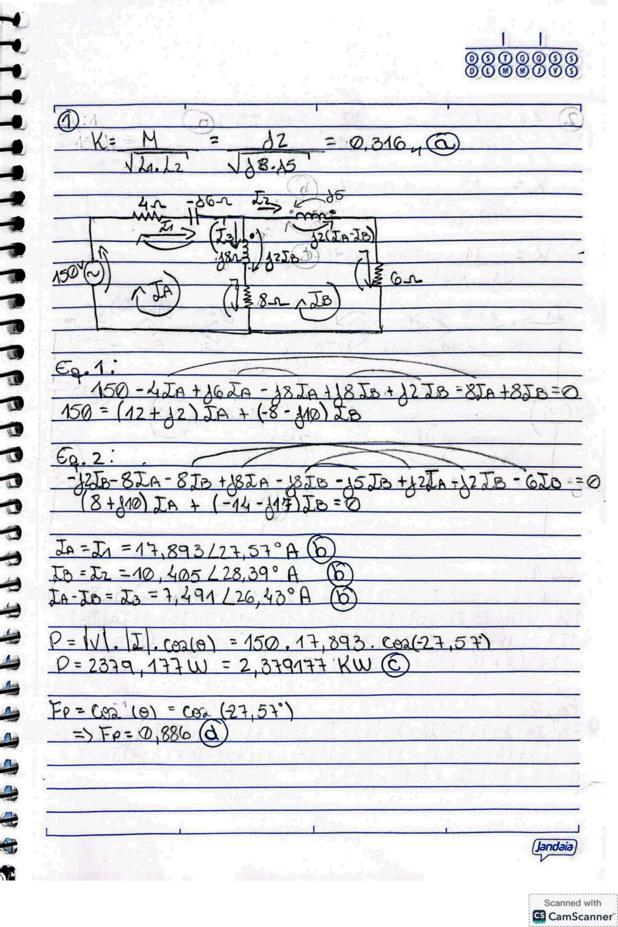 D S T Q Q S S
D L M M J V S
①
K = M / √L1.L2 = j2 / √j8.j5 = 0,316 ⓐ
4Ω -j6Ω I2 j5
I1 I3 j2(IA-IB)
j8Ω j2IB
150V IA 8Ω IB 6Ω
Eq. 1:
150 - 4IA + j6IA - j8IA + j8IB + j2IB = 8IA + 8IB = 0
150 = (12 + j2) IA + (-8 - j10) IB
Eq. 2:
-j2IB - 8IA - 8IB + j8IA - j8IB - j5IB + j2IA - j2IB - 6IB = 0
(8 + j10) IA + (-14 - j17) IB = 0
IA = I1 = 17,893 ∠27,57° A ⓑ
IB = I2 = 10,405 ∠28,39° A ⓑ
IA-IB = I3 = 7,491 ∠26,43° A ⓑ
P = |V|.|I|.cos(θ) = 150.17,893.cos(-27,57)
P = 2379,177W = 2,379177 KW ⓒ
Fp = cos (θ) = cos (-27,57°)
=> Fp = 0,886 ⓓ
Jandaia
Scanned with
CS CamScanner